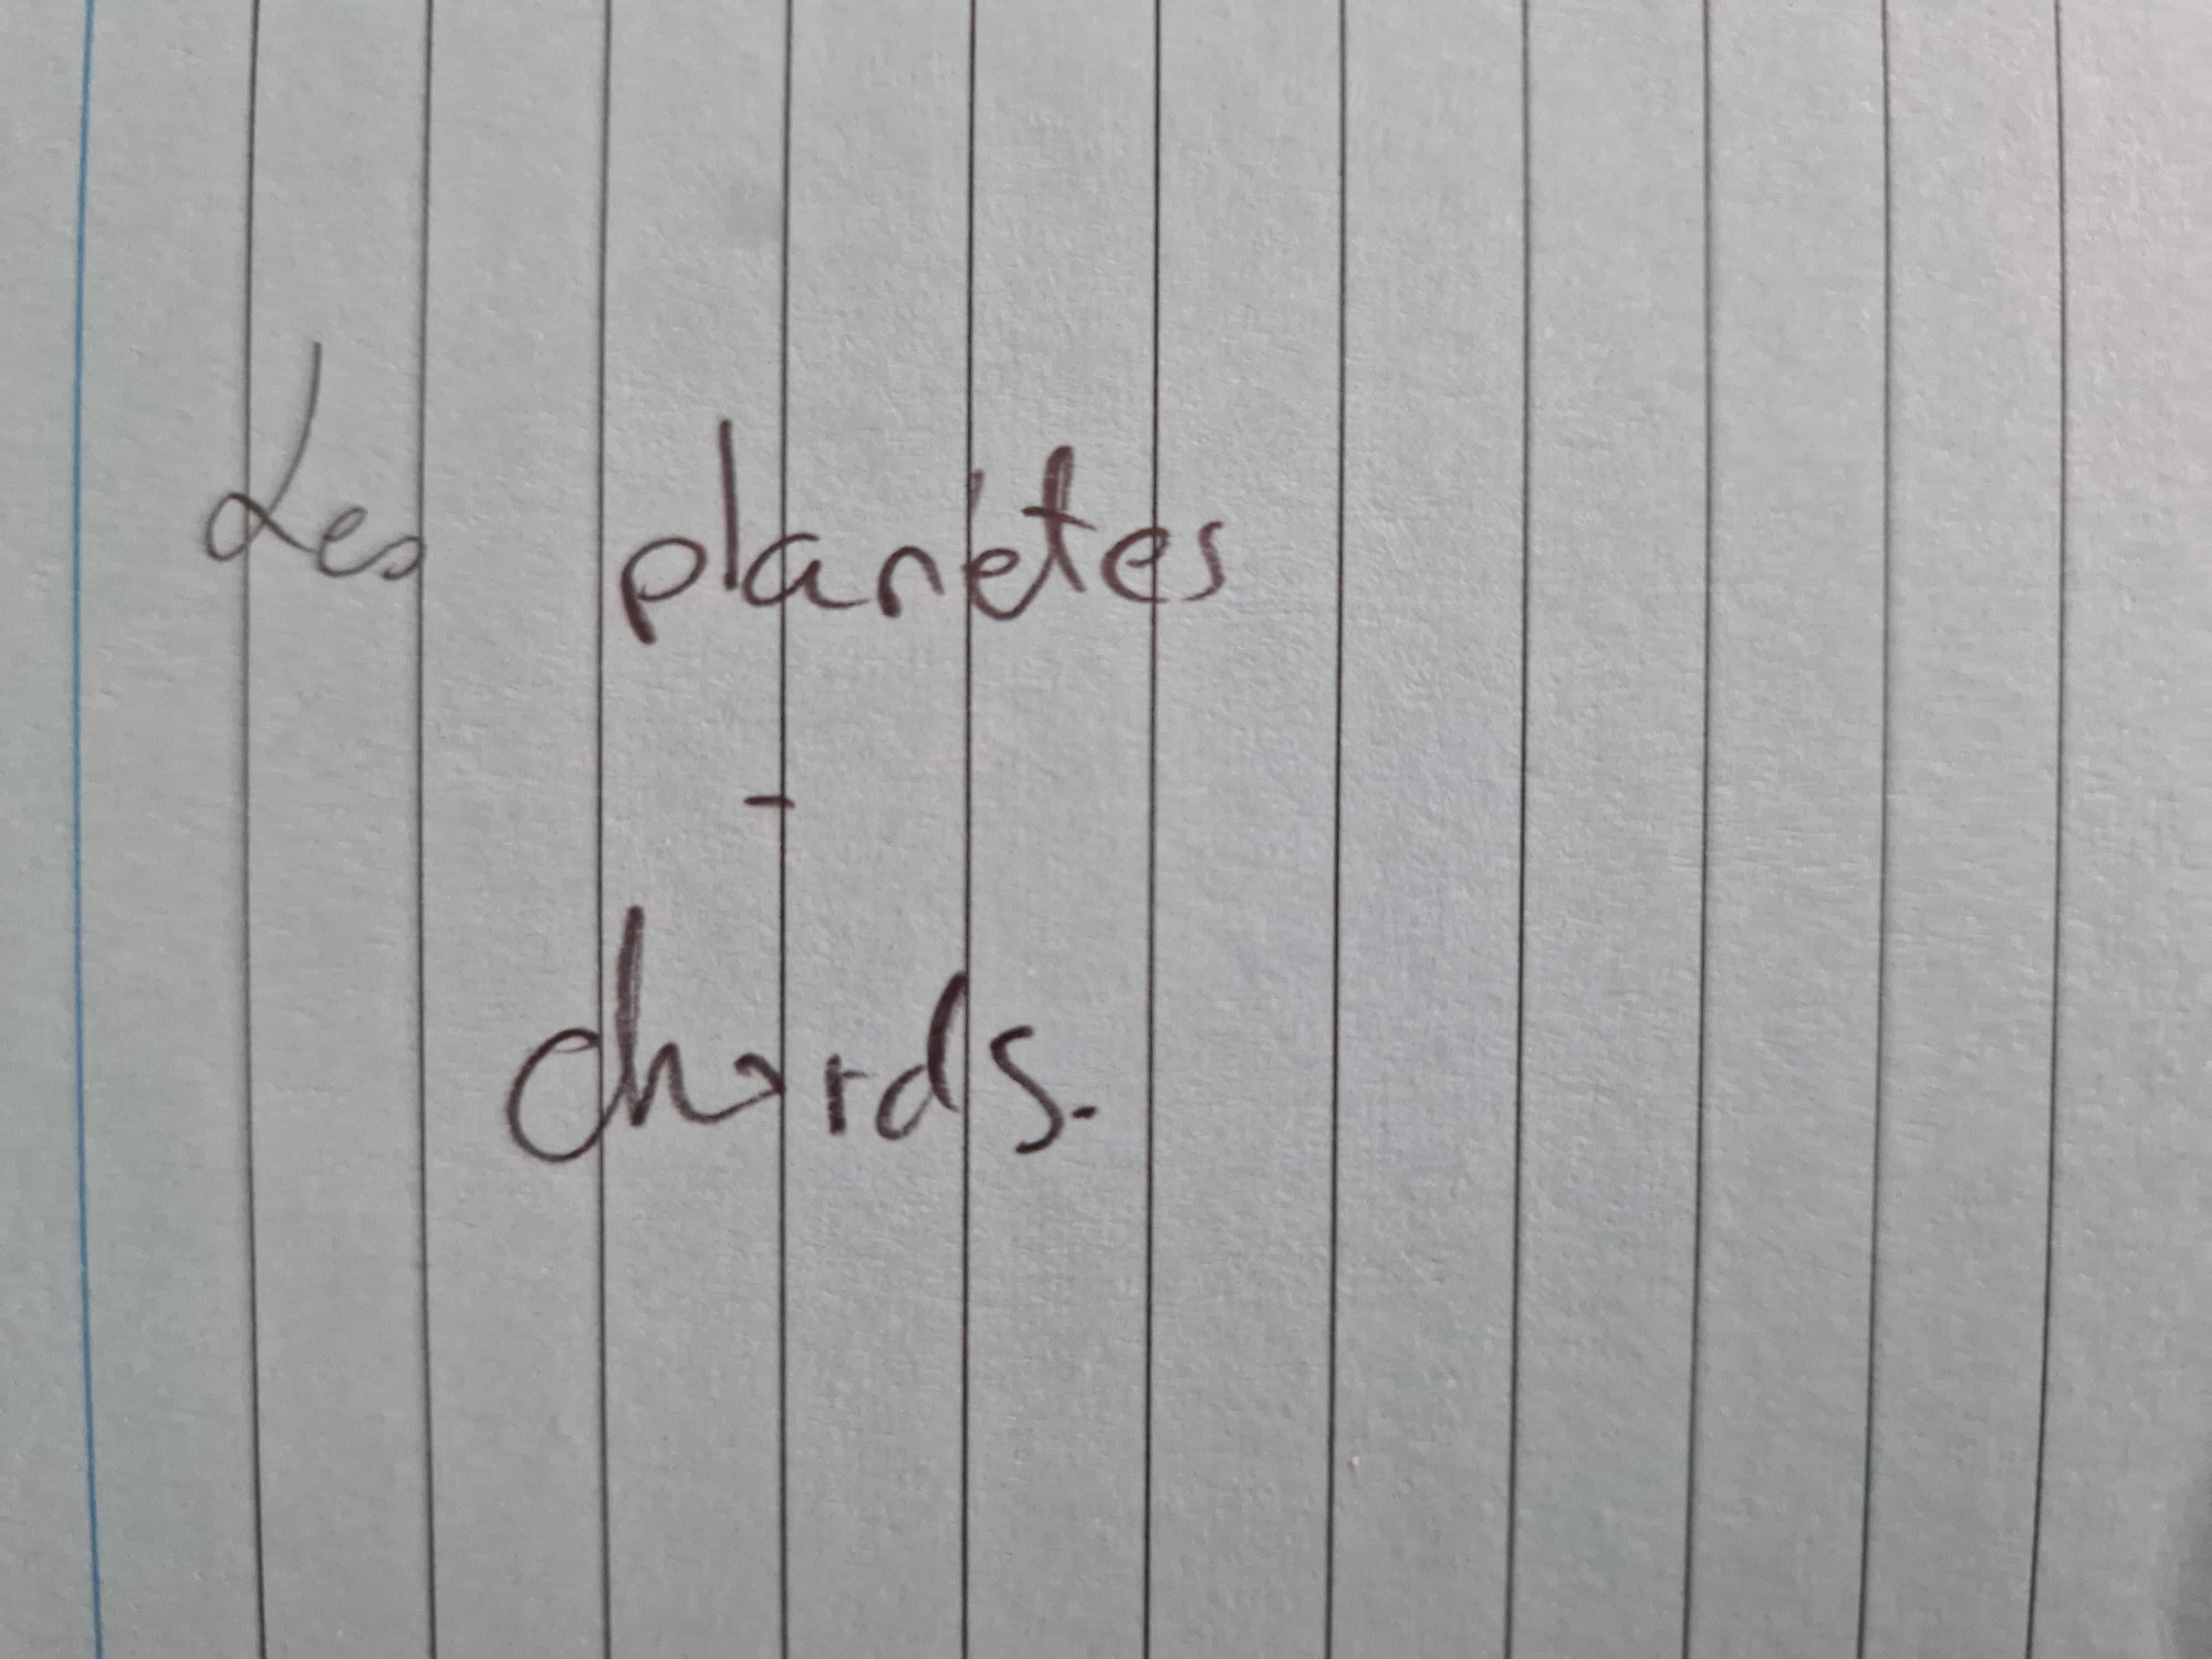 Les planétes
-
chords.